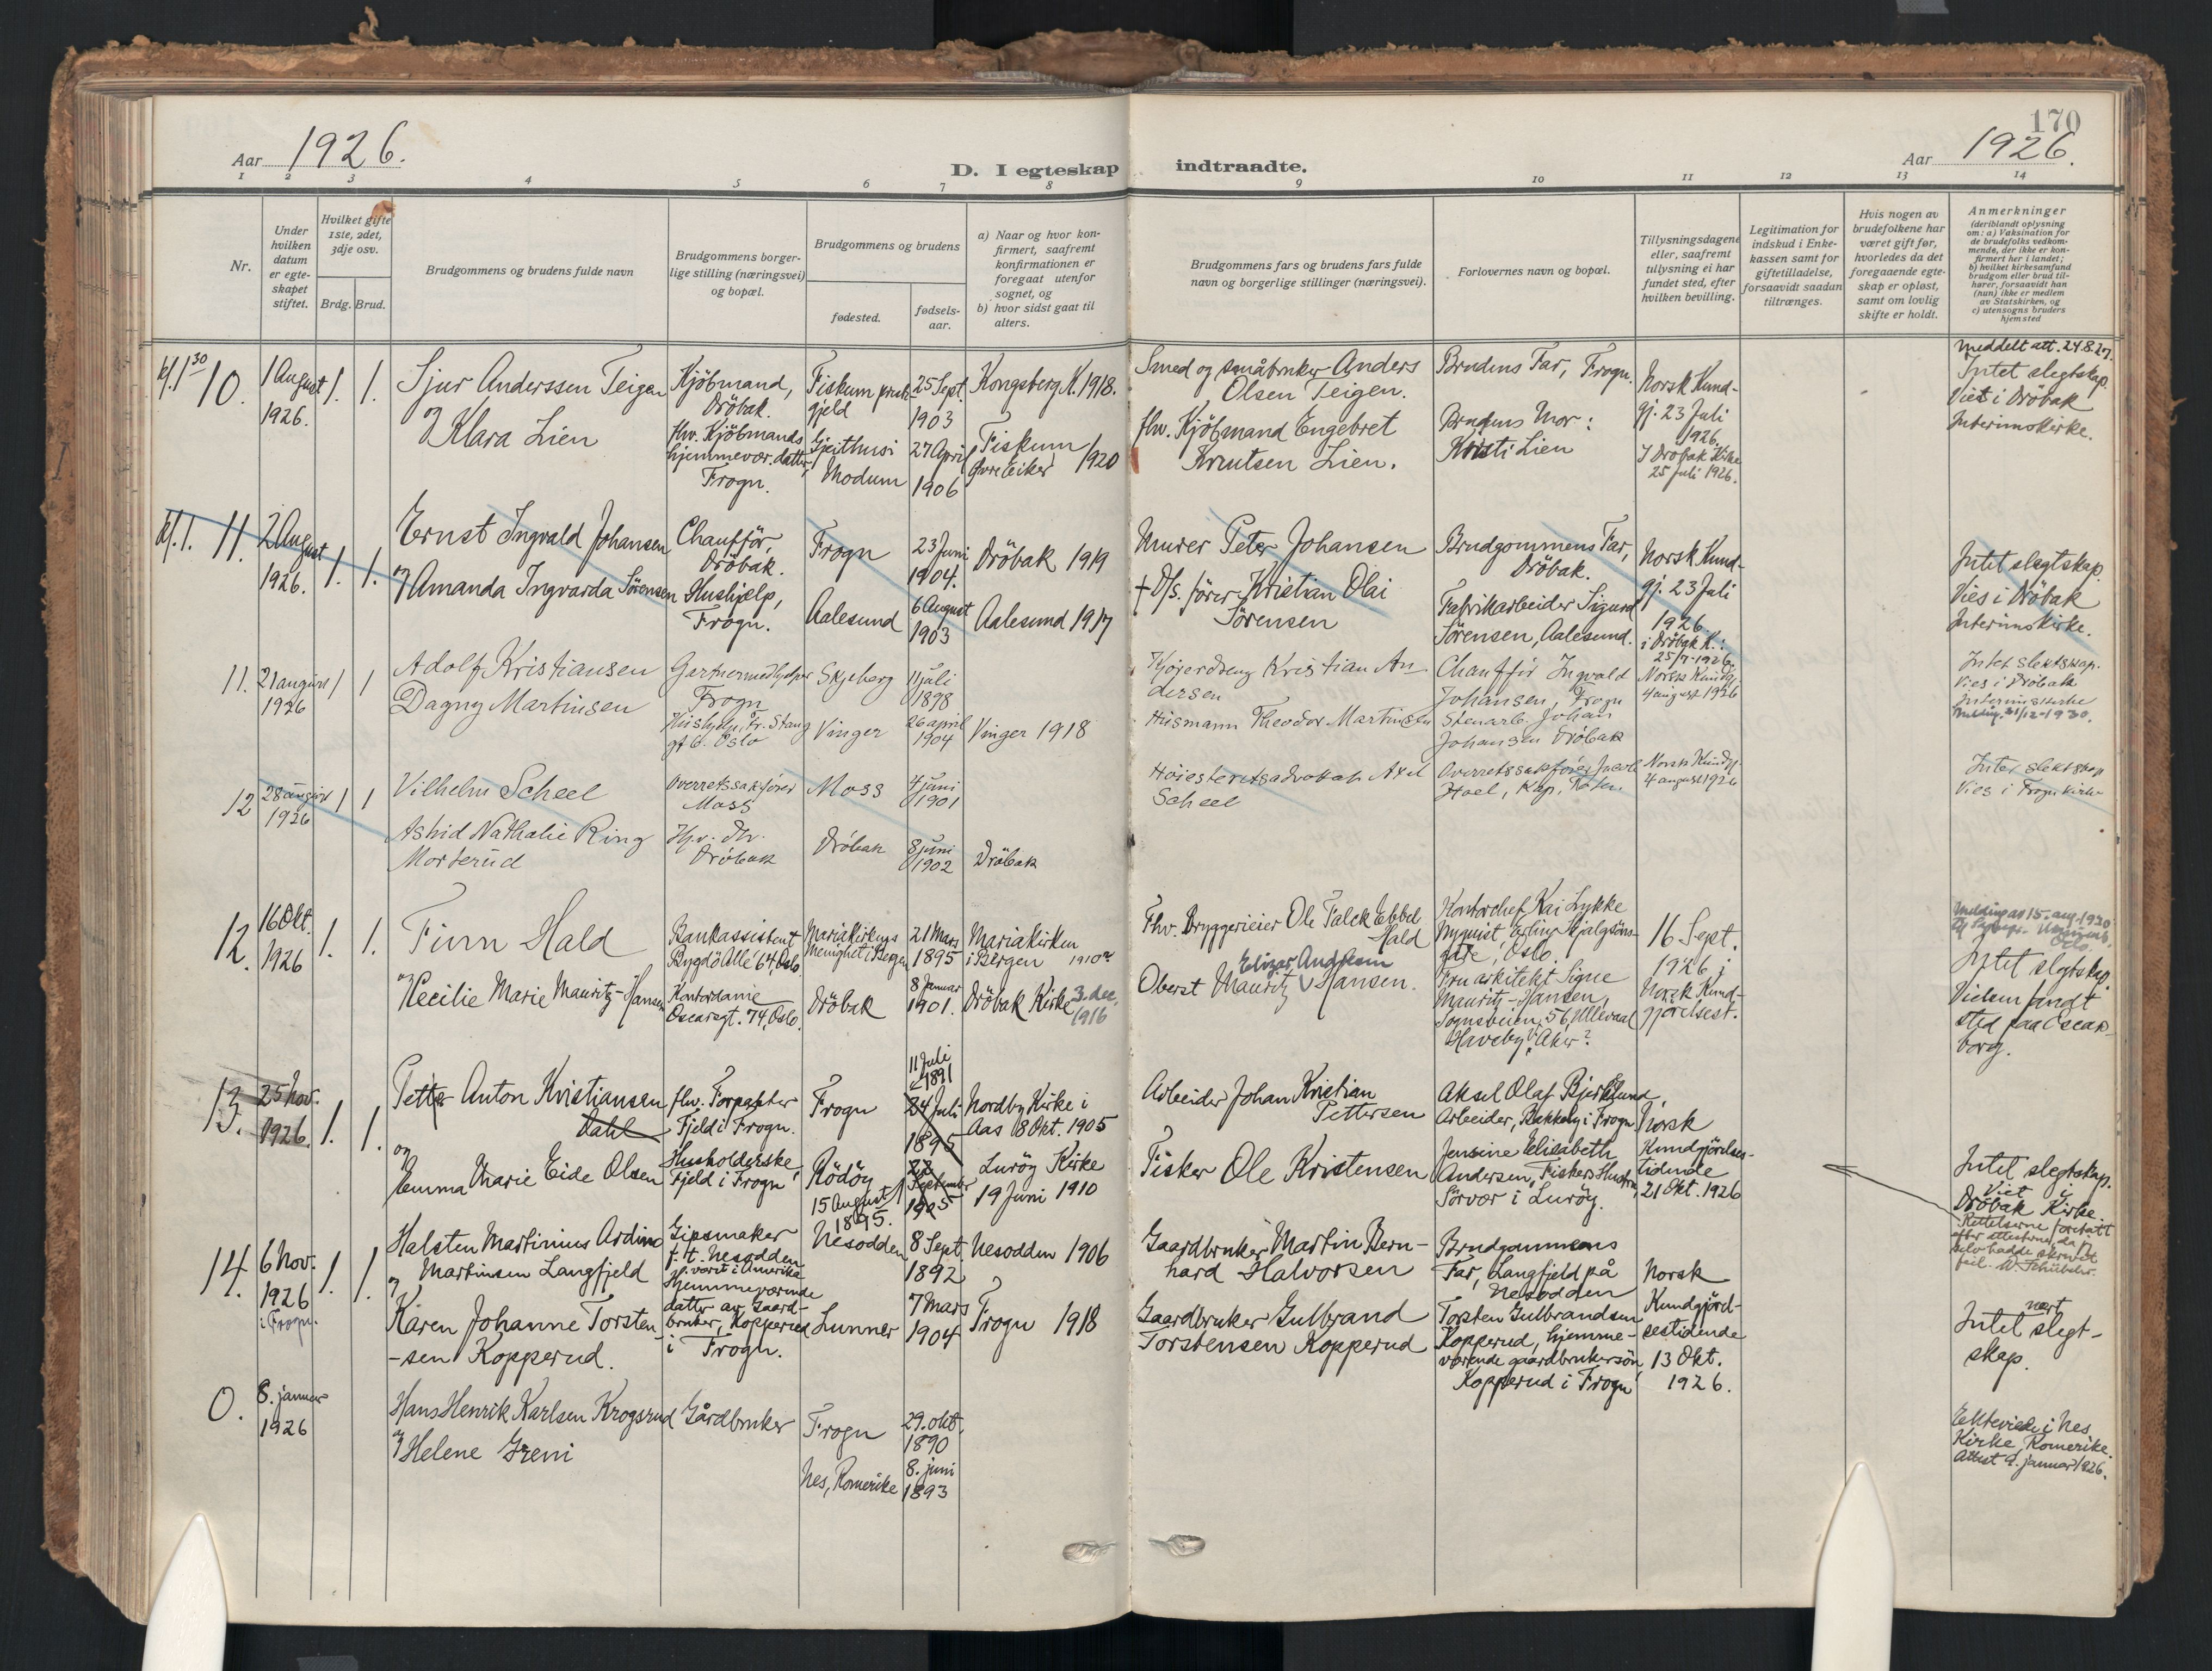 170
Aar 1926.
D. I egteskap indtraadte.
Aar 1926.
1 2 3 4 5 6 7 8 9 10 11 12 13 14
Nr.
Under hvilken datum er egteskapet stiftet.
Hvilket gifte 1ste, 2det, 3dje osv.
Brdg. Brud.
Brudgommens og brudens fulde navn
Brudgommens borgerlige stilling (næringsvei) og bopæl.
Brudgommens og brudens
fødested.
fødselsaar.
a) Naar og hvor konfirmert, saafremt konfirmationen er foregaat utenfor sognet, og
b) hvor sidst gaat til alters.
Brudgommens fars og brudens fars fulde navn og borgerlige stillinger (næringsvei).
Forlovernes navn og bopæl.
Tillysningsdagene eller, saafremt tillysning ei har fundet sted, efter hvilken bevilling.
Legitimation for indskud i Enkekassen samt for giftetilladelse, forsaavidt saadan tiltrænges.
Hvis nogen av brudefolkene har været gift før, hvorledes da det foregaaende egteskap er opløst, samt om lovlig skifte er holdt.
Anmerkninger
(deriblandt oplysning om: a) Vaksination for de brudefolks vedkommende, der ikke er konfirmert her i landet;
b) hvilket kirkesamfund brudgom eller brud tilhører, forsaavidt han (hun) ikke er medlem av Statskirken, og
c) utensogns bruders hjemsted
kl. 1 30
10.
1 August
1926.
1. 1.
Sjur Anderssen Teigen
og Klara Lien
Kjöbmand,
Dröbak.
fhv. Kjöbmands
hjemmevær. datter,
Frogn.
Fiskum prestegjeld
Gjeithusi
Modum
25 Sept.
1903
27 April
1906
Kongsberg K. 1918.
Fiskum
Övre Eiker 1920
Smed og småbruker Anders
Olsen Teigen.
fhv. Kjöbmand Engebret
Knutsen Lien.
Brudens Far, Frogn.
Brudens Mor:
Kristi Lien
Norsk Kund-
gj. 23 Juli
1926
I Dröbak Kirke
25 Juli 1926.
Meddelt att. 24.8.27.
Intet slegtskap.
Viet i Dröbak
Interimskirke.
kl. 1.
11.
2 August
1926.
1. 1.
Ernst Ingvald Johansen
og Amanda Ingvarda Sörensen
Chaufför,
Dröbak.
Hushjælp,
Frogn.
Frogn
Aalesund
23 Juni
1904.
6 August
1903
Dröbak 1919
Aalesund 1917
Murer Peter Johansen
† D/s. förer Kristian Olai
Sörensen
Brudgommens Far,
Dröbak.
Fabrikarbeider Sigurd
Sörensen, Aalesund.
Norsk Kund-
gj. 23 Juli
1926
i Dröbak K.:
25/7-1926.
Intet slegtskap
Vies i Dröbak
Interimskirke.
11.
21 august
1926
1 1
Adolf Kristiansen
Dagny Martinsen
Frogn
Oslo
Skjeberg
Vinger
11 juli
1898
26 april
1904
Vinger 1918
Kristian An-
dersen
Husmann Theodor Martinsen
Chauffør Ingvald
Johansen, Frogn
Stenarb. Johan
Johansen Drøbak
Norsk Kundg.
4 august 1926
Intet slektskap.
Vies i Drøbak
Interimskirke
31/12-1930.
12
28 august
1926
1 1
Vilhelm Scheel
Astrid Nathalie Ring
Morterud
Overretssakfører
Moss
Drøbak
Moss
Drøbak
4 juni
1901
8 juni
1902
Drøbak
Høiesteretsadvokat Axel
Scheel
Overretssakfører
Norsk Kundg.
4 august 1926
Intet slektskap
Vies i Frogn kirke
12.
16 Okt.
1926
1. 1.
Finn Hald
og Cecilie Marie Mauritz-Hansen
Bankassistent
Bygdö Allé 64 Oslo
Kontordame
Oscarsgt. 74, Oslo.
Mariakirkens
Menighet i Bergen
Dröbak
21 Mars
1895
8 Januar
1901.
Mariakirken
i Bergen 1910
Dröbak Kirke 3. dec.
1916
Fhv. Bryggerieier Ole Falck Ebbel
Hald
Oberst Mauritz Hansen.
Kontorchef Kai Lykke
Nyquist, Erling Skjalgsöns-
gate, Oslo.
Fru arkitekt Signe
Mauritz-Hansen,
Sognsveien 56, Ullevaal
Haveby, Aker
16 Sept.
1926 i
Norsk Kund-
gjörelsest.
Intet slegtskap.
Vielsen fandt
sted paa Oscars-
borg.
13.
25 Nov.
1926.
1. 1.
Petter Anton Kristiansen
Dahl
og
Emma Marie Eide Olsen
fhv. Forpagter
Fjeld i Frogn.
Husholderske,
Fjeld i Frogn
Frogn
Rödöy
15 August
1895.
11 Juli
1891
24 Juli
1895
22 September
1905
Nordby Kirke i
Aas 8 Okt. 1905
Luröy Kirke
19 Juni 1910
Arbeider Johan Kristian
Pettersen
Fisker Ole Kristensen
Aksel Olaf Bjerklund,
Arbeider, Bakkely i Frogn
Jensine Elisabeth
Andersen, Fiskers Hustru,
Sörvær i Luröy.
Norsk
Kundgjörelses-
tidende
21 Okt. 1926
Intet slegtskap.
Viet i
Dröbak Kirke.
Rettelserne foretatt
efter attesterne, da
selv hadde skrevet
feil.
14.
6 Nov.
1926
i Frogn.
1. 1.
Halsten Martinius Ardino
Martinsen Langfjeld
og
Karen Johanne Torsten-
-sen Kopperud.
Gipsmaker
f. t. Nesodden,
været i Amerika
Hjemmeværende
datter av Gaard-
bruker, Kopperud
i Frogn.
Nesodden
Lunner
8 Sept.
1892
7 Mars
1904
Nesodden 1906
Frogn 1918
Gaardbruker Martin Bern-
hard Halvorsen
Gaardbruker Gulbrand
Torstensen Kopperud
Brudgommens
Far, Langfjeld på
Nesodden
Torsten Gulbrandsen
Kopperud, hjemme-
værende gaardbrukersön,
Kopperud i Frogn
Norsk
Kundgjörel-
sestidende
13 Okt.
1926.
Intet nært slegt-
skap.
0.
8. januar
1926
Hans Henrik Karlsen Krogsrud
og Helene Greni
Gårdbruker
Frogn
Nes, Romerike
29. okt.
1890
8. juni
1893
Ekteviede i Nes
Kirke, Romerike.
Attest 9. januar 1926.